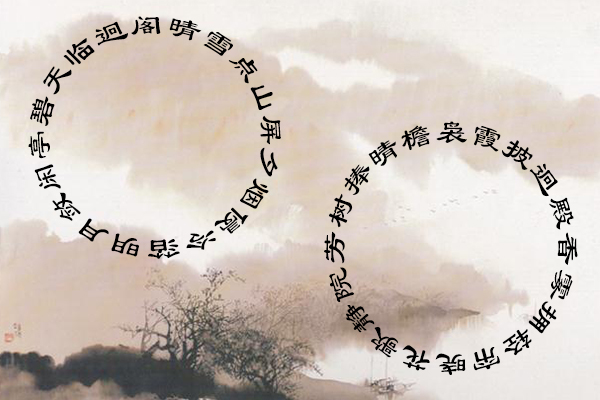 碧天临迥阁晴雪点山屏夕烟侵冷箔明月敛闲亭
晓花欹静院芳树捧晴檐袅霞披迥殿香雾拥轻帘